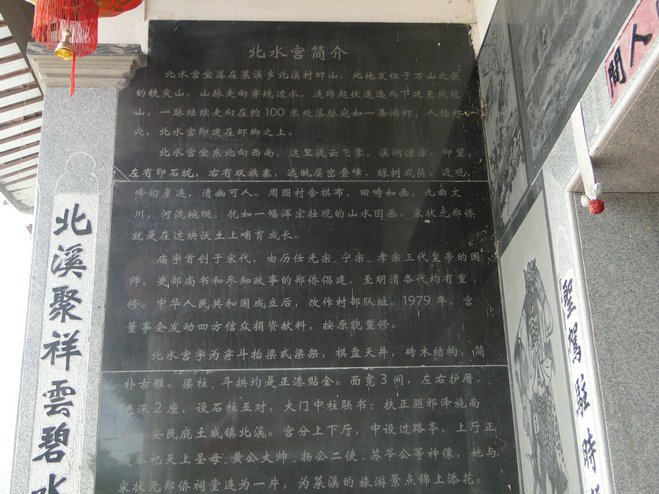 北水宫简介
北水宫坐落在菜溪乡北溪村虾山，此地发祖于万山之
的铁尖山，山脉走向穿坑过水，连绵起伏逶迤而下延至凤冠
山，一脉继续走向在约100米处落脉宛如一条游虾，人称虾
穴，北水宫即建在虾脚之上。
北水宫坐东北向西南，这里流云飞雾，溪涧淙淙。仰望，
左有印石垅，右有双旗寨，远眺层峦叠嶂，绿树成荫。近观，
峰回崖连，清幽可人。周围村舍棋布，田畴如画，九曲文
川，河流蜿蜒，犹如一幅浑宏壮观的山水图画。宋状元郑侨
就是在这块沃土上哺育成长。
庙宇首创于宋代，由历任光宗、宁宗、孝宗三代皇帝的国
师，吏部尚书和参知政事的郑侨倡建，至明清各代均有重
修。中华人民共和国成立后，改作村部队址。1979年，宫
董事会发动四方信众捐资献料，按原貌重修。
北水宫宇为穿斗抬梁式梁架，棋盘天井，砖木结构，简
朴古雅。梁柱、斗拱均是正漆贴金。面宽3间，左右护厝，
进深2座，设石柱五对，大门中柱联书：扶正驱邪泽施南
安民庇土威镇北溪。宫分上下厅，中设过路亭，上厅正
奉祀天上圣母、黄公大师、杨公二使、苏爷公等神像，她与
宋状元郑侨祠堂连为一片，为菜溪的旅游景点锦上添花。
北溪聚祥雲碧水
聖駕駐時
人間